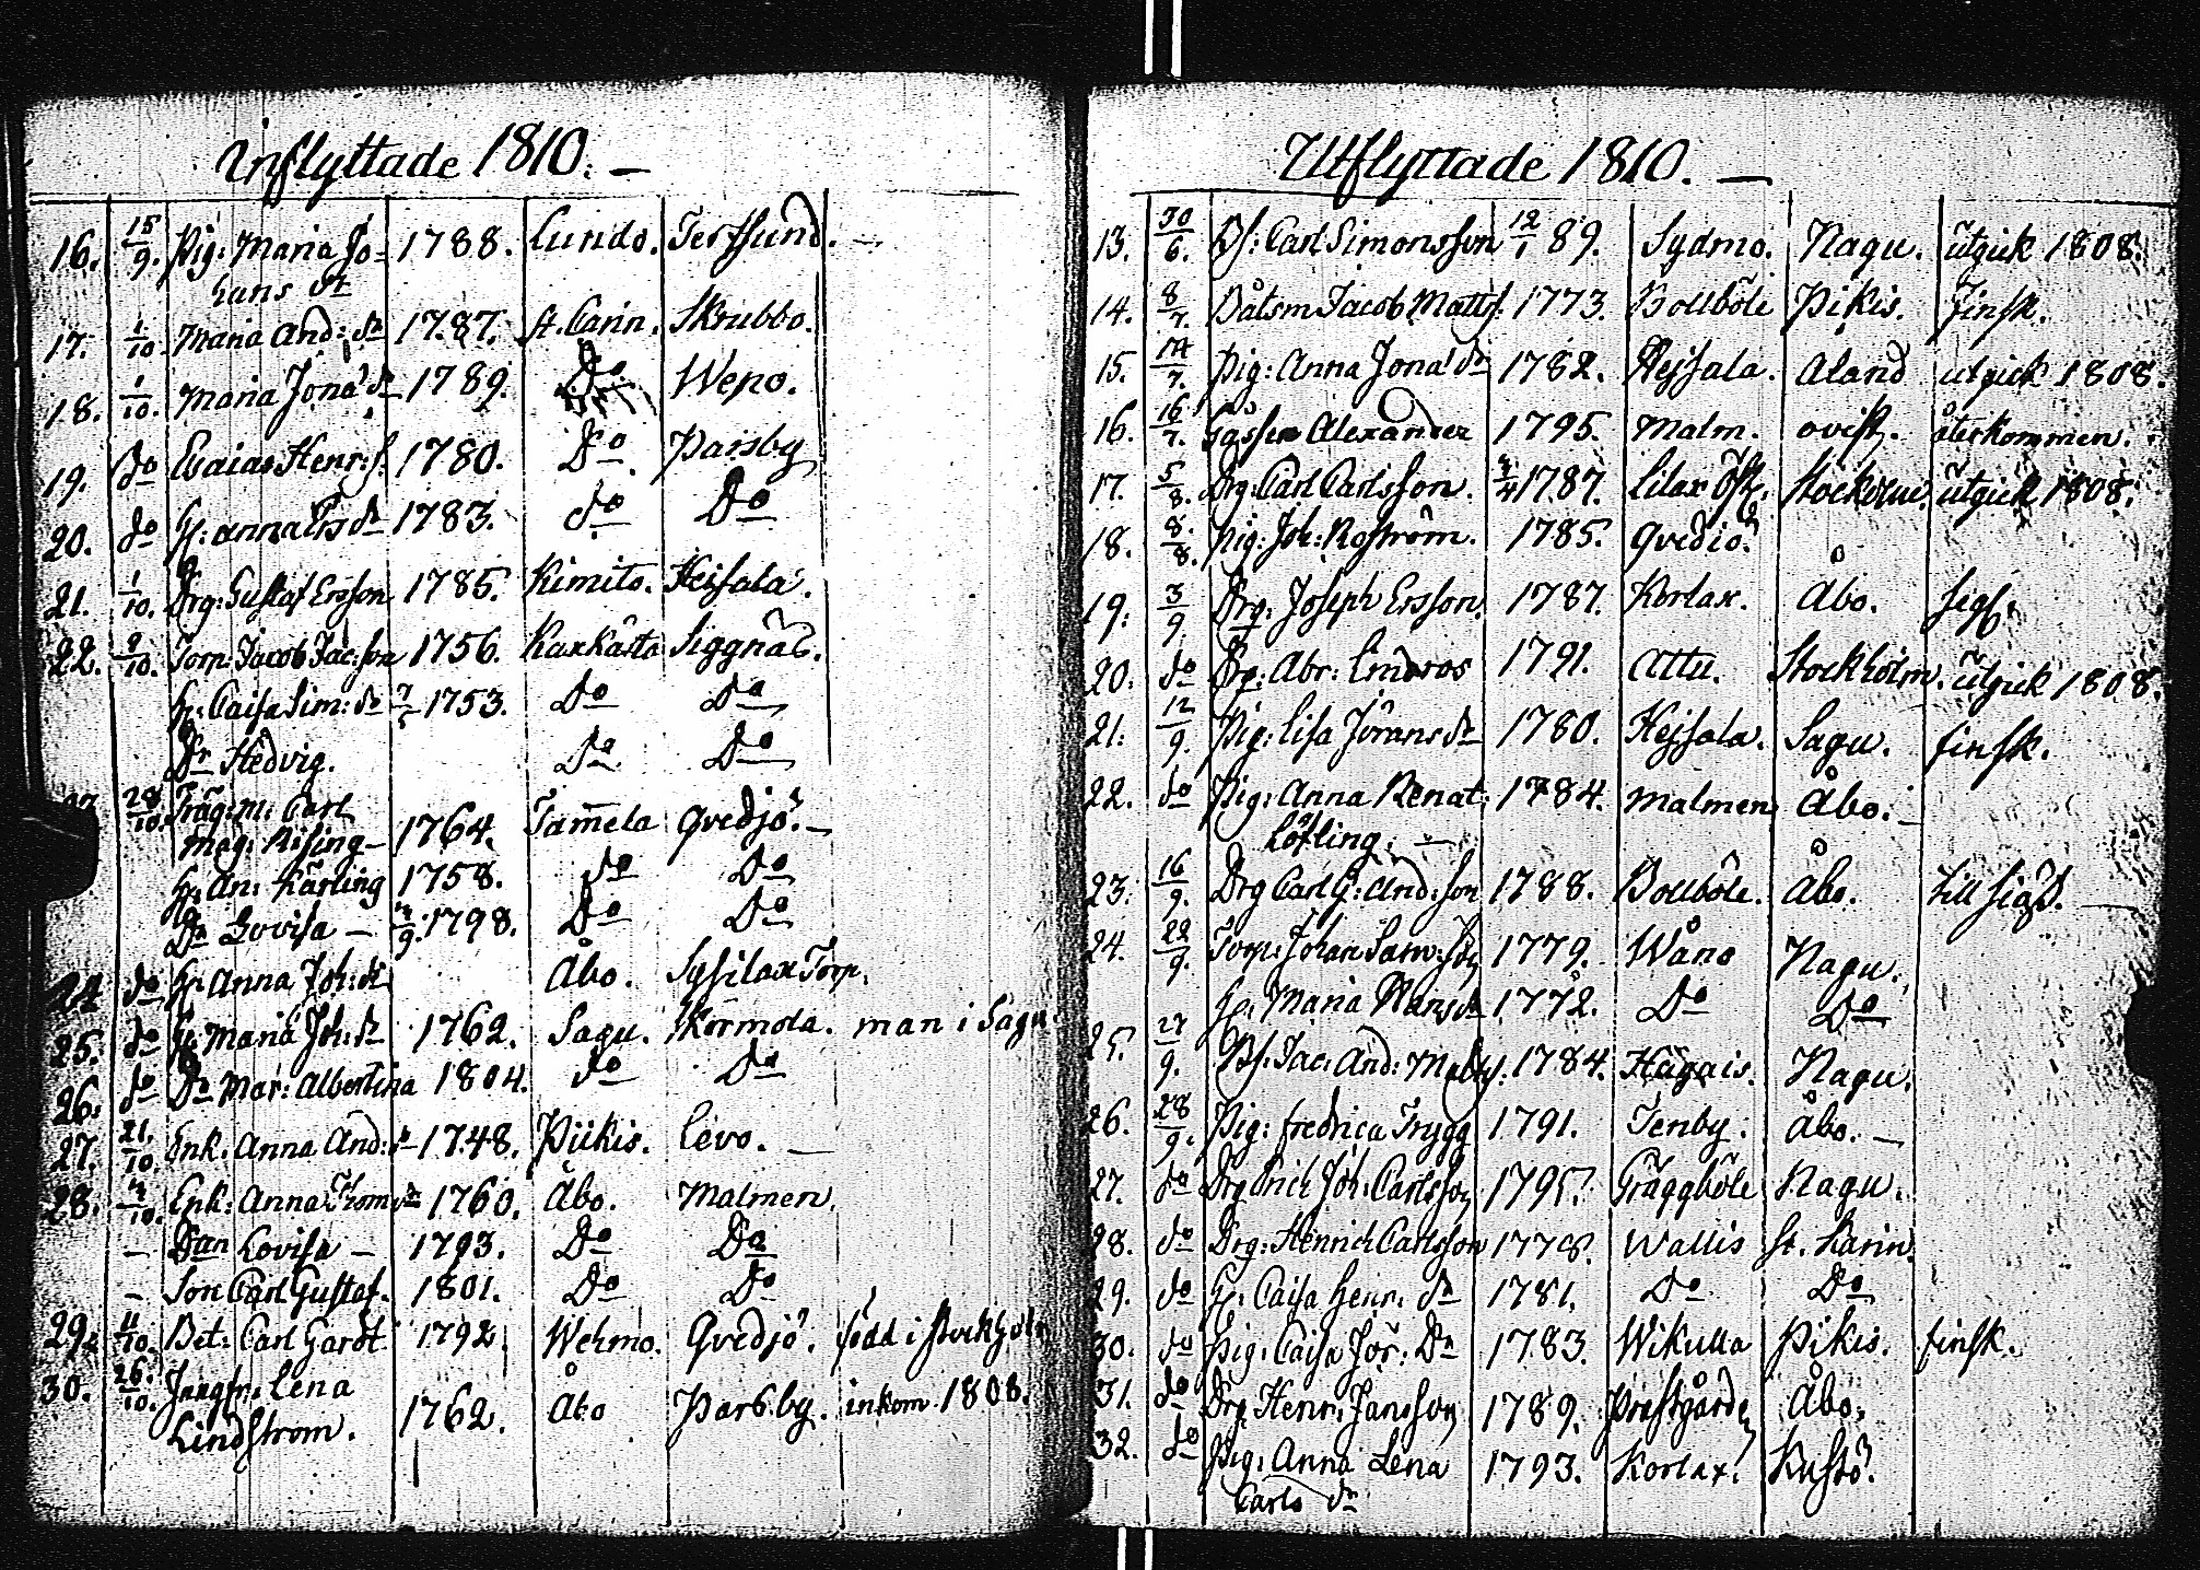 Inflyttade 1810. —
16. 15/9. Pig: Maria Jo= 1788. Lundo. Terfsund. —
hans dr
17. 1/10. Maria And: dr 1787. St. Carin. Skrubbo.
18. 1/10. Maria Jona dr 1789. Do Weno.
19. do Esaias Henr: s. 1780. Do Parsby
20. do H: Anna Lis dr 1783. do Do
21. 1/10. Drg: Gustaf Ersson 1785. Kimito. Heisala.
22. 9/10. Torp: Jacob Jac: son 1756. Kaxkärta Siggnäs.
H: Caisa Sim: dr 1753. Do Do
Dr Hedvig. Do Do
28/10. Träg: m: Carl
Mag: Rising — 1764. Tamela Qvedjo. —
H: An: Kärling 1758. do Do
Dr Lovisa — 1798. Do Do
24 do H: Anna Joh: dr Åbo. Sysilax Torp.
25. do H: Maria Joh: dr 1762. Sagu. Skärmola. man i Sagu
26. do Dr Mar: Albertina 1804. do Do
27. 21/10. Enk: Anna And: dr 1748. Piikis. Levo. —
28. Enk: Anna Thom dr 1760. Åbo. Malmen.
— Dan Lovisa — 1793. Do Do
— Son Carl Gustaf. 1801. Do Do
29. 11/10. Bet: Carl Gardt 1792. Wehmo. Qvedjo. född i Stockholm
30. 26/10. Jungfr: Lena
Lindstrom. 1762. Åbo Parsby. inkom 1808.
Utflyttade 1810. —
13. 30/6. Bs: Carl Simonsson 12/1 89. Sydmo. Nagu. utgick 1808.
14. 8/7. Båtsm Jacob Matts: 1773. Bollböle Pikis. finsk.
15. 14/7. Pig: Anna Jona dr 1782. Hejsala. Åland utgick 1808.
16. 16/7. Gossen Alexander 1795. Malm. ovist. återkommen.
17. 5/8. Drg: Carl Carlsson. 1787. Lilax Öst. Stockolm. utgick 1808.
18. 8/8. Pig: Joh: Roström. 1785. Qvedio.
19. 3/9 Drg: Joseph Ersson. 1787. Korlax. Åbo. Sigf.
20. do Drg: Abr: Lindroos 1791. Attu. Stockholm. utgick 1808.
21. 12/9. Pig: Lisa Jörans dr 1780. Hejsala. Sagu. finsk.
22. do Pig: Anna Renat: 1784. Malmen Åbo. —
Löfling. —
23. 16/9. Drg Carl G: And: son 1788. Bollböle. Åbo. till Sigf.
24. 22/9. Torp: Johan Sam: son 1779. Wåno Nagu.
H: Maria Hans dr 1772. Do Do
25. 27/9. Bs. Jac: And: Malms. 1784. Hagais. Nagu.
26. 28/9. Pig: Fredrica Trygg 1791. Tenby. Åbo. —
27. do Drg Erich Joh: Carlsson 1795. Gräggböle Nagu.
28. do Drg: Henrich Carlsson 1778. Wallis St. Karin.
29. do H: Caisa Henr: dr 1781. Do Do
30. do Pig: Caisa Jör: Dr 1783. Wikulla Pikis. finsk.
31. do Drg: Henr: Jansson 1789. Prästgården Åbo.
32. do Pig: Anna Lena 1793. Korlax. Kustö.
Carls dr